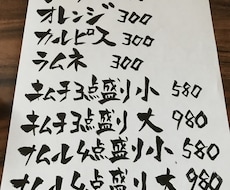 オレンジ 300
カルピス 300
ラムネ 300
キムチ3点盛り 小 580
キムチ3点盛り 大 980
ナムル4点盛り 小 580
ナムル4点盛り 大 980